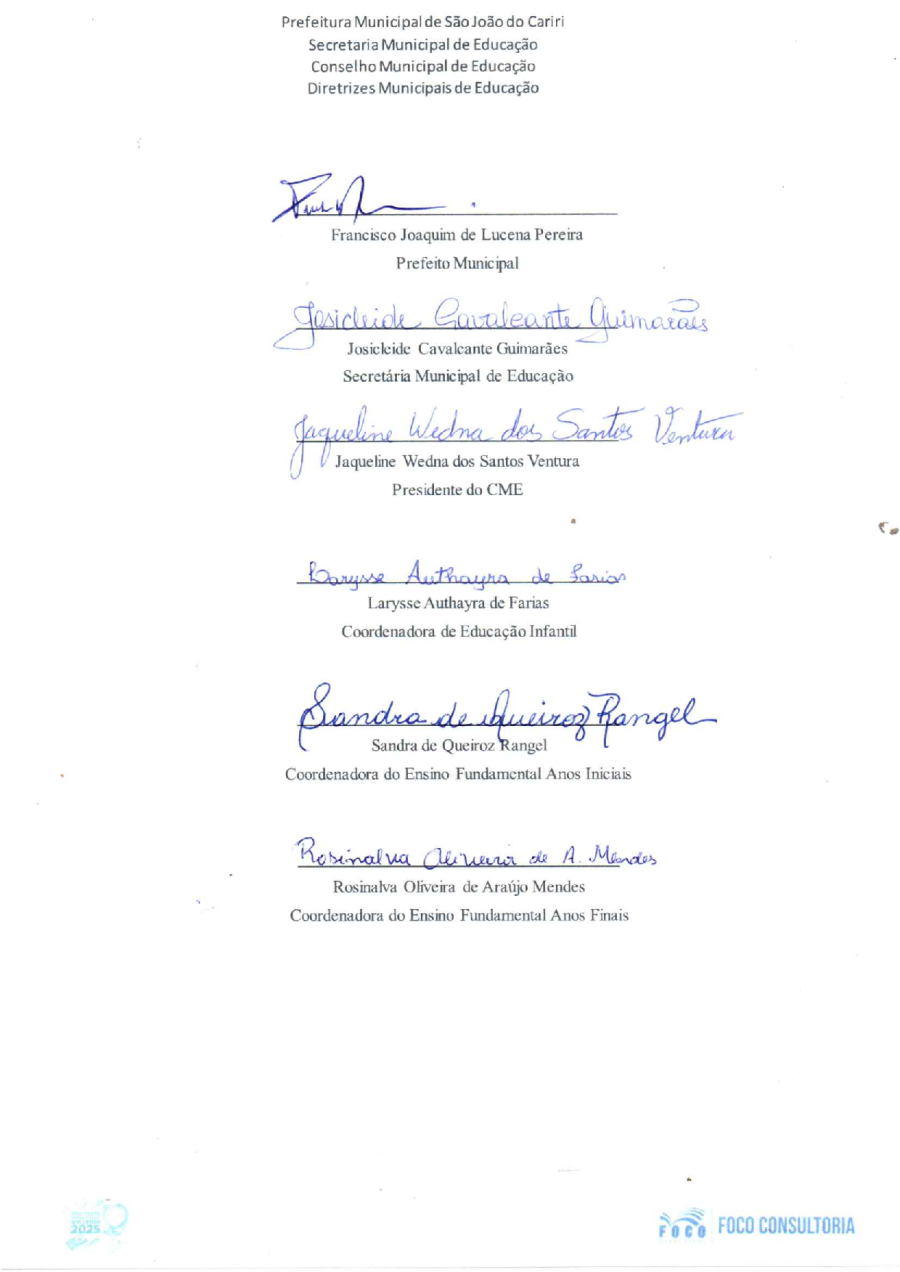 Prefeitura Municipal de São João do Cariri
Secretaria Municipal de Educação
Conselho Municipal de Educação
Diretrizes Municipais de Educação
Francisco Joaquim de Lucena Pereira
Prefeito Municipal
Josicleide Cavalcante Guimarães
Josicleide Cavalcante Guimarães
Secretária Municipal de Educação
Jaqueline Wedna dos Santos Ventura
Jaqueline Wedna dos Santos Ventura
Presidente do CME
Larysse Authayra de Farias
Larysse Authayra de Farias
Coordenadora de Educação Infantil
Sandra de Queiroz Rangel
Sandra de Queiroz Rangel
Coordenadora do Ensino Fundamental Anos Iniciais
Rosinalva Oliveira de A. Mendes
Rosinalva Oliveira de Araújo Mendes
Coordenadora do Ensino Fundamental Anos Finais
2025
FOCO FOCO CONSULTORIA